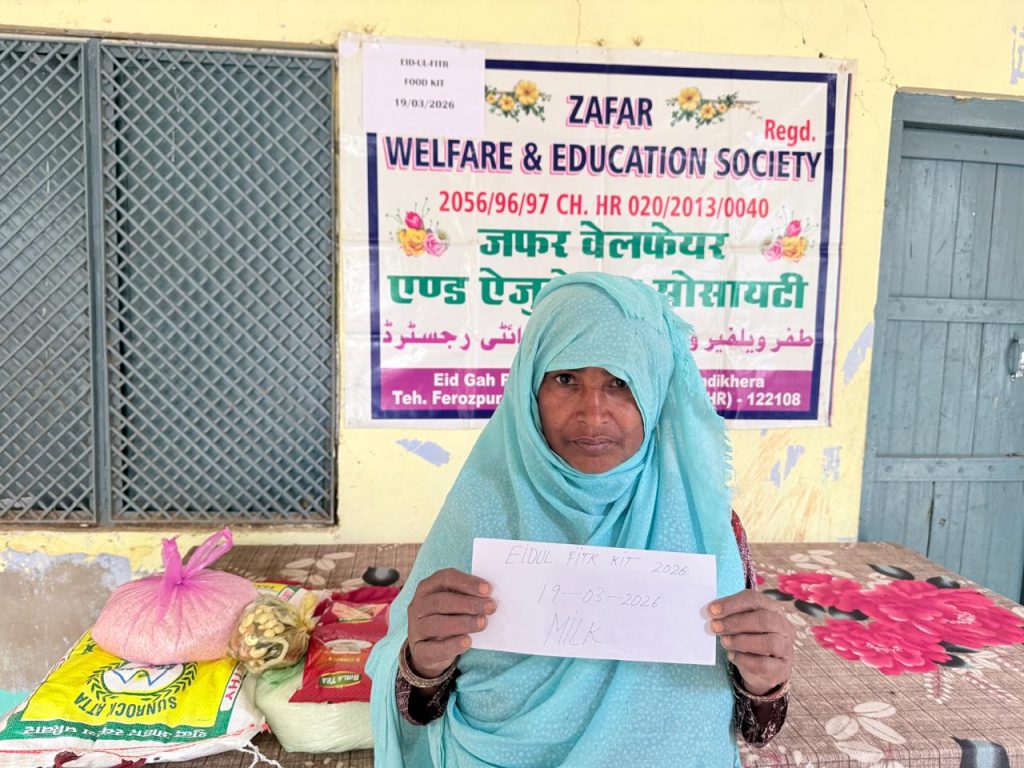 EID-UL-FITR
FOOD KIT
19/03/2026
ZAFAR
Regd.
WELFARE & EDUCATION SOCIETY
2056/96/97 CH. HR 020/2013/0040
जफर वेलफेयर
एण्ड सोसायटी
ظفر ویلفیر رجسٹرڈ
Eid Gah
Teh. (HR) - 122108
EIDUL FITR KIT 2026
19-03-2026
MILK
SUNROCK ATTA
BIRLA TEA